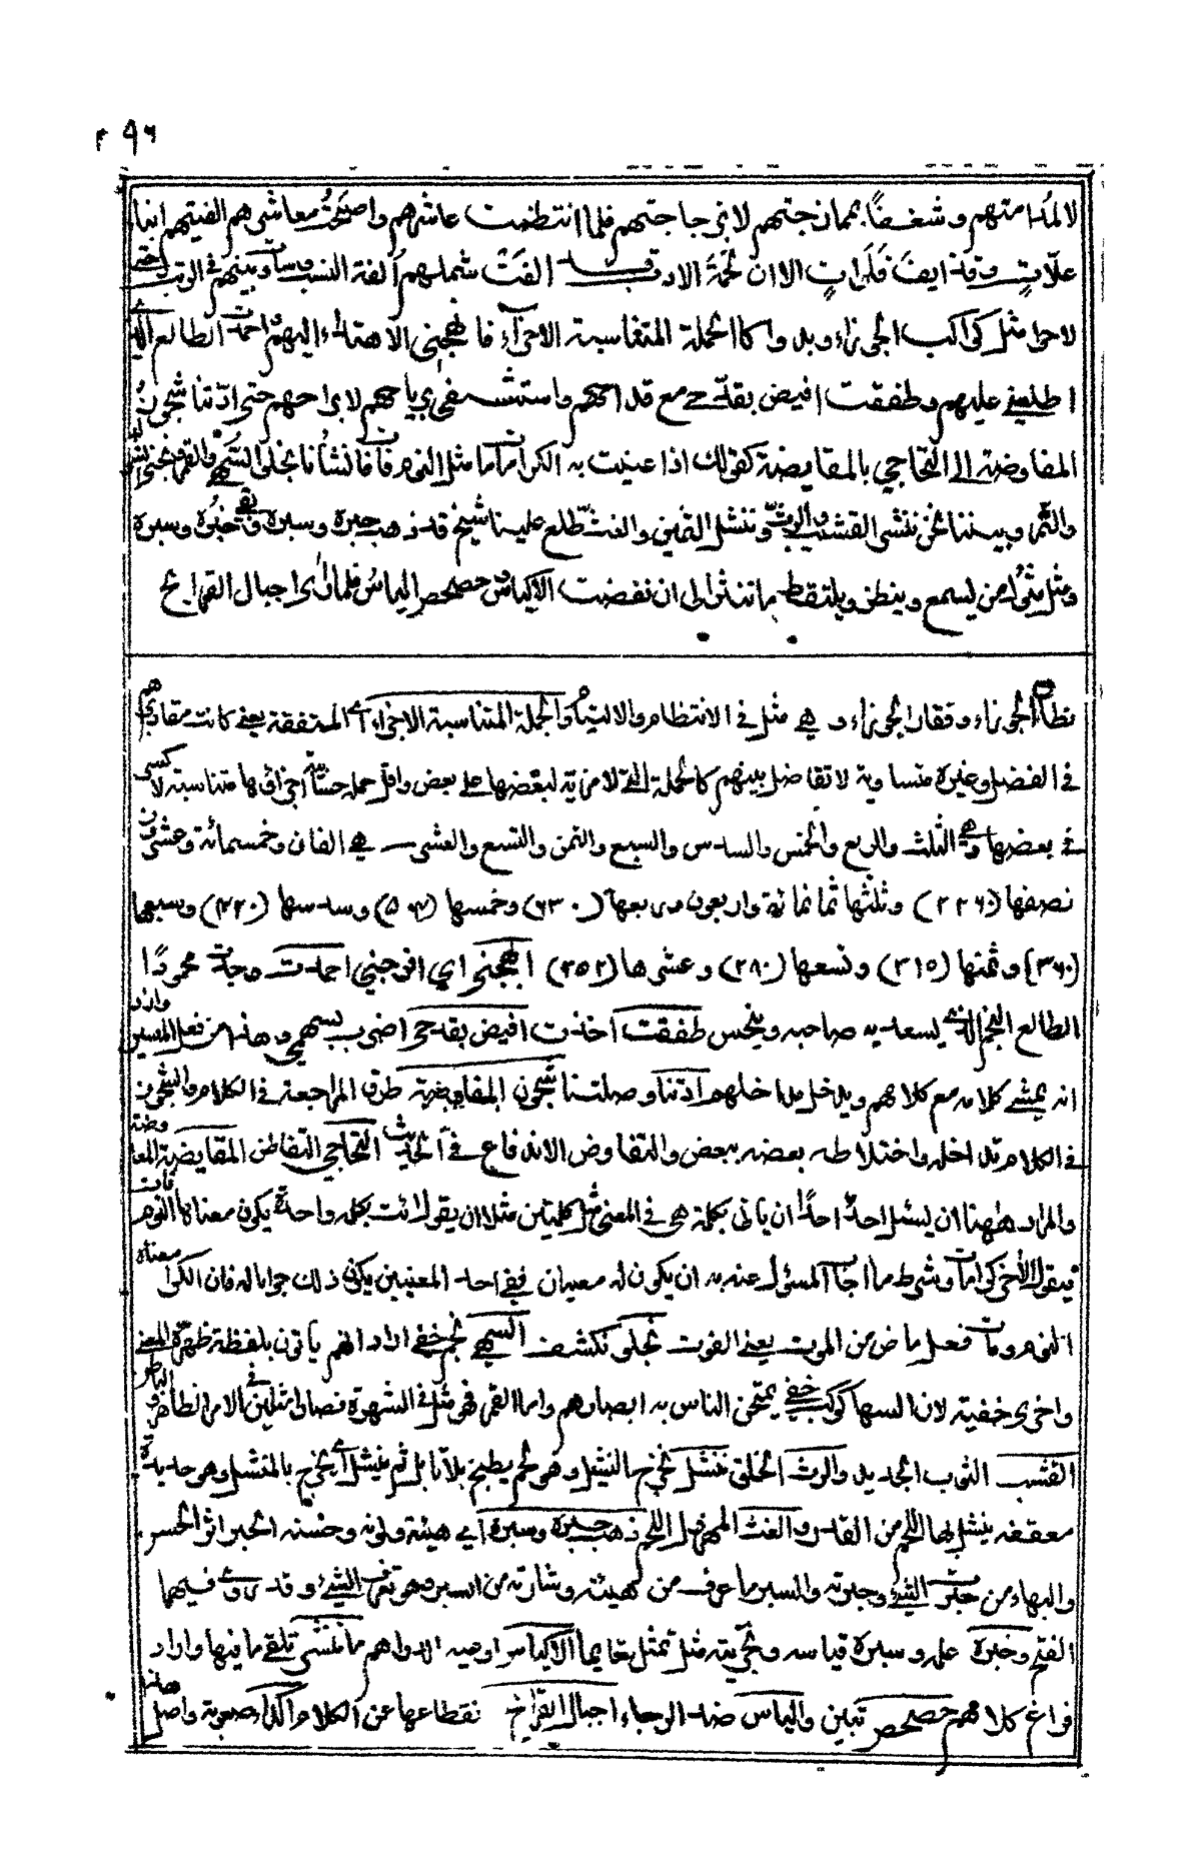 ٢٩٦
لالمدامتهم وشغفا بممازجتهم لا بزجاجتهم فلما انتظمت عاشرهم واضحت معاشرهم الفيتهم ابناء
علات وقذائف فلوات الا ان لحمة الادب الفت شملهم الفة النسب وساوت بينهم فى الرتب حتى
لاحوا مثل كواكب الجوزاء وبدوا كالجملة المتناسبة الاجزاء فابهجنى الاهتداء اليهم واحمدت الطالع الذى
اطلعنى عليهم وطفقت افيض بقدحى مع قداحهم واستشفى برياحهم لا براحهم حتى ادتنا شجون
المفاوضة الى التحاجى بالمقايضة كقولك اذا عنيت به الكرامات ما مثل النوم فات فانشأنا نجلو السها والقمر ونجنى الشوك
والثمر وبيننا نحن ننشر القشيب والرث وننشل الثمين والغث طلع علينا شيخ قد ذهب حبره وسبره وبقى خبره وسبره
ومثل مثول من يسمع وينظر ويلتقط ما ننثر الى ان نفضت الاكياس وحصحص الياس فلما راى اجبال القرائح
نظام الجوزاء وفقار الجوزاء وهى مثل فى الانتظام والالتيام والجملة المتناسبة الاجزاء اى المتفقة يعنى كانت مقاديرهم
فى الفضل وغيره متساوية لا تفاضل بينهم كالجملة التى لا مزية لبعضها على بعض واقل جملة حسابية اجزاؤها متناسبة لا كسر
فى بعضها وهى الثلث والربع والخمس والسدس والسبع والثمن والتسع والعشر هى الفان وخمسمائة وعشرون
نصفها (١٢٦٠) وثلثها ثمانمائة واربعون وربعها (٦٣٠) وخمسها (٥٠٤) وسدسها (٤٢٠) وسبعها
(٣٦٠) وثمنها (٣١٥) وتسعها (٢٨٠) وعشرها (٢٥٢) ابهجنى اى افرحنى احمدت وجدته محمودا
الطالع النجم الذى يسعد به صاحبه وينحس طفقت اخذت افيض بقدحى اضرب بسهمى وهذا من فعل الميسر واراد
انه يمشى كلامه مع كلامهم ويدخل مداخلهم ادتنا وصلتنا شجون المفاوضة طرق المراجعة فى الكلام والشجون
فى الكلام تداخله واختلاطه بعضه ببعض والتفاوض الاندفاع فى الحديث التحاجى التفاطن المقايضة المعاوضة
والمراد ههنا ان يسئل احد احدا ان ياتى بكلمة هى فى المعنى مثل كلمتين مثلا ان يقول ائت بكلمة واحدة يكون معناها النوم فات
فيقول الاخر كرامات وشرط ما اجاب المسئول عنه به ان يكون له معنيان ففى احد المعنيين يكون ذلك جوابا له فان الكرا معناه
النوم ومات فعل ماض من الموت يعنى الفوت نجلو نكشف السهى نجم خفى اراد انهم ياتون بلفظة ظاهرة المعنى
واخرى خفية لان السها كوكب خفى يمتحن الناس به ابصارهم واما القمر فهو مثل فى الشهرة فصارا مثلين فى الامر الظاهر والباطن
القشب الثوب الجديد والرث الخلق ننشل نخرج بالنشيل وهو لحم يطبخ بلا تابل ثم ينشل اى يخرج بالمنشل وهو حديدة
معقفة ينشل بها اللحم من القدر والغث المهزول اللحم ذهب حبره وسبره اى هيئته ولونه وحسنه الحبر اثر الحسن
والبهاء من حبرت الشئ وحبرته والسبر ما عرف من هيئته وشارته من السبر وهو تعرف الشئ وقد روى فيهما
الفتح وخبره علمه وسبره قياسه وتجربته مثل تمثل بقايما الاكياس اوعية الدراهم ما ننثر تلقى ما فيها واراد
فراغ كلامهم حصحص تبين والياس ضد الرجاء اجبال القرائح نقطاعها عن الكلام واكداء صعوبة واصل هذا